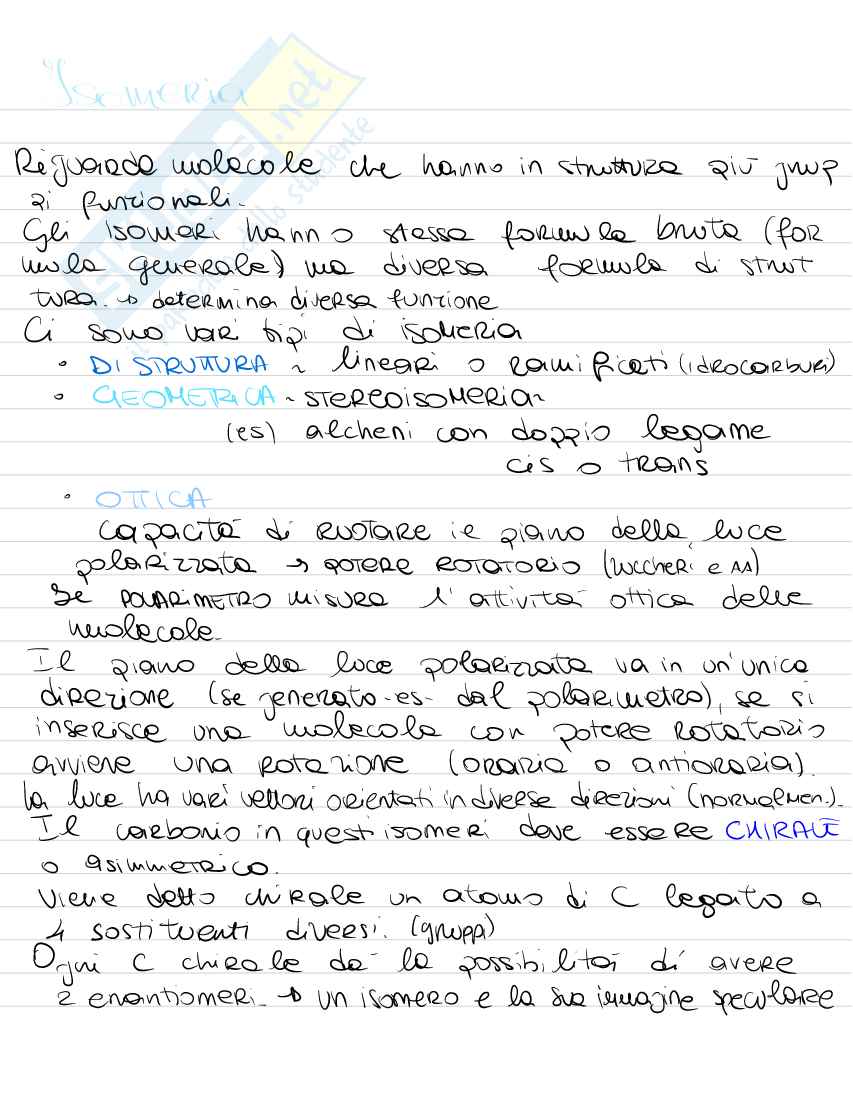 Isomeria
Riguarda molecole che hanno in struttura più grup
pi funzionali.
Gli isomeri hanno stessa formula bruta (for
mula generale) ma diversa formula di strut
tura. → determina diversa funzione
Ci sono vari tipi di isomeria
• DI STRUTTURA ~ lineari o ramificati (idrocarburi)
• GEOMETRICA - STEREOISOMERIA -
(es) alcheni con doppio legame
cis o trans
• OTTICA
capacità di ruotare il piano della luce
polarizzata → POTERE ROTATORIO (zuccheri e AA)
Il POLARIMETRO misura l'attività ottica delle
molecole.
Il piano della luce polarizzata va in un'unica
direzione (se generato -es- dal polarimetro), se si
inserisce una molecola con potere rotatorio
avviene una rotazione (oraria o antioraria).
La luce ha vari vettori orientati in diverse direzioni (normalmen.).
Il carbonio in questi isomeri deve essere CHIRALE
o asimmetrico.
Viene detto chirale un atomo di C legato a
4 sostituenti diversi. (gruppi)
Ogni C chirale dà la possibilità di avere
2 enantiomeri. → un isomero e la sua immagine speculare